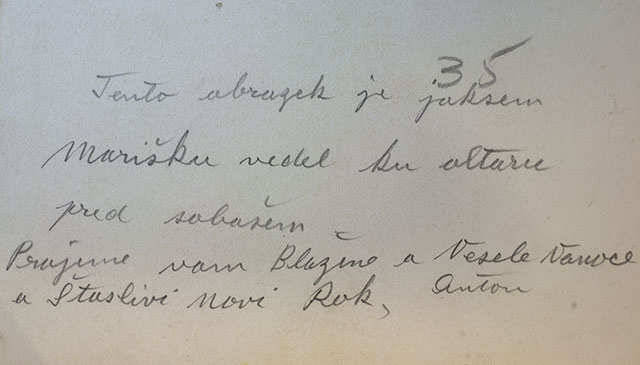 35
Tento obrazek je jaksem
Marišku vedel ku oltaru
pred sobašem
Prajeme vam Blažene a Vesele Vanoce
a Štaslivi Novi Rok, Anton